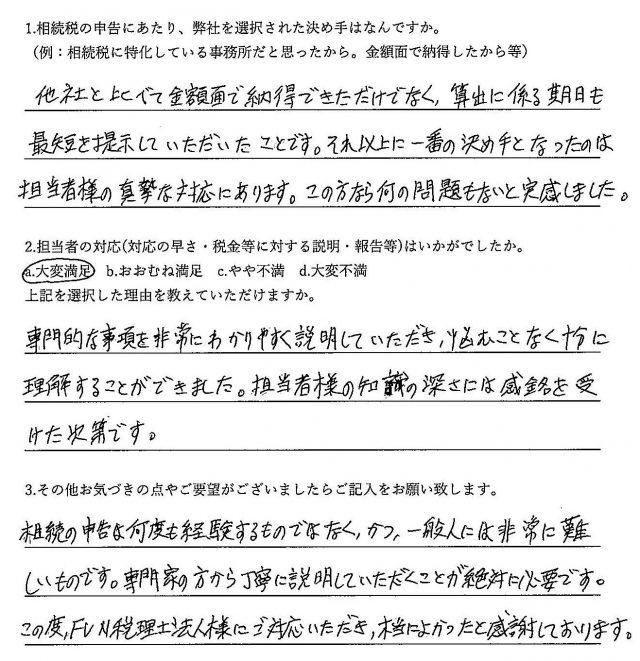 1.相続税の申告にあたり、弊社を選択された決め手はなんですか。
（例：相続税に特化している事務所だと思ったから。金額面で納得したから等）
他社と比べて金額面で納得できただけでなく、算出に係る期日も
最短を提示していただいたことです。それ以上に一番の決め手となったのは
担当者様の真摯な対応にあります。この方なら何の問題もないと実感しました。
2.担当者の対応(対応の早さ・税金等に対する説明・報告等)はいかがでしたか。
a.大変満足 b.おおむね満足 c.やや不満 d.大変不満
上記を選択した理由を教えていただけますか。
専門的な事項を非常にわかりやすく説明していただき,悩むことなく十分に
理解することができました。担当者様の知識の深さには感銘を受
けた次第です。
3.その他お気づきの点やご要望がございましたらご記入をお願い致します。
相続の申告は何度も経験するものではなく,かつ,一般人には非常に難
しいものです。専門家の方から丁寧に説明していただくことが絶対に必要です。
この度,FUN税理士法人様にご対応いただき,本当によかったと感謝しております。